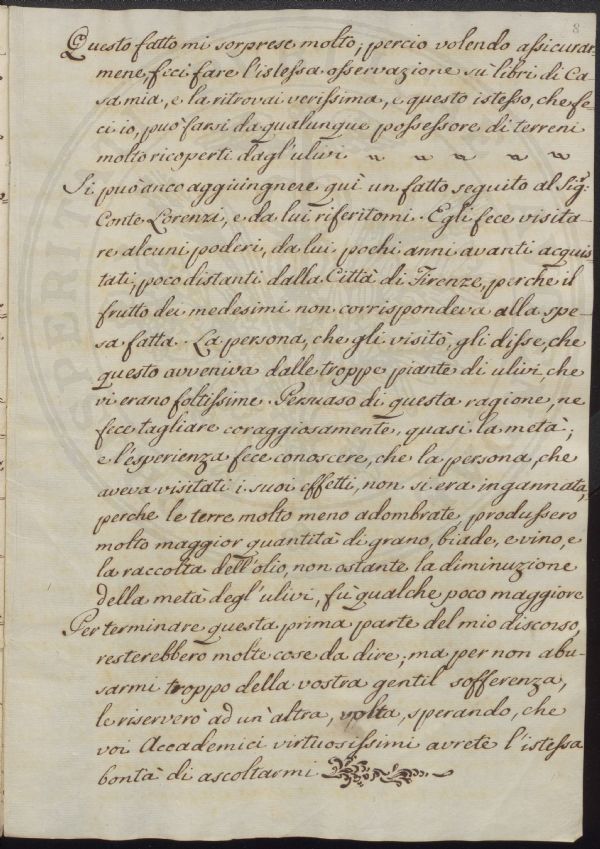 8
Questo fatto mi sorprese molto; percio volendo assicurar-
mene, feci fare l'istessa osservazione sù libri di Ca-
sa mia, e la ritrovai verissima, e questo istesso, che fe-
ci io, può farsi da qualunque possessore di terreni
molto ricoperti dagl'ulivi
Si può anco aggiungnere quì un fatto seguito al Sig:r
Conte Lorenzi, e da lui riferitomi. Egli fece visita-
re alcuni poderi, da lui pochi anni avanti acquis-
tati, poco distanti dalla Città di Firenze, perche il
frutto dei medesimi non corrispondeva alla spe-
sa fatta. La persona, che gli visitò, gli disse, che
questo avveniva dalle troppe piante di ulivi, che
vi erano foltissime. Persuaso di questa ragione, ne
fece tagliare coraggiosamente, quasi la metà;
e l'esperienza fece conoscere, che la persona, che
aveva visitati i suoi effetti, non si era ingannata,
perche le terre molto meno adombrate, produssero
molto maggior quantità di grano, biade, e vino, e
la raccolta dell'olio, non ostante la diminuzione
della metà degl'ulivi, fù qualche poco maggiore
Per terminare questa prima parte del mio discorso,
resterebbero molte cose da dire; ma per non abu-
sarmi troppo della vostra gentil sofferenza,
le riserverò ad un'altra, volta, sperando, che
voi Accademici virtuosissimi avrete l'istessa
bontà di ascoltarmi
SPERIMEN